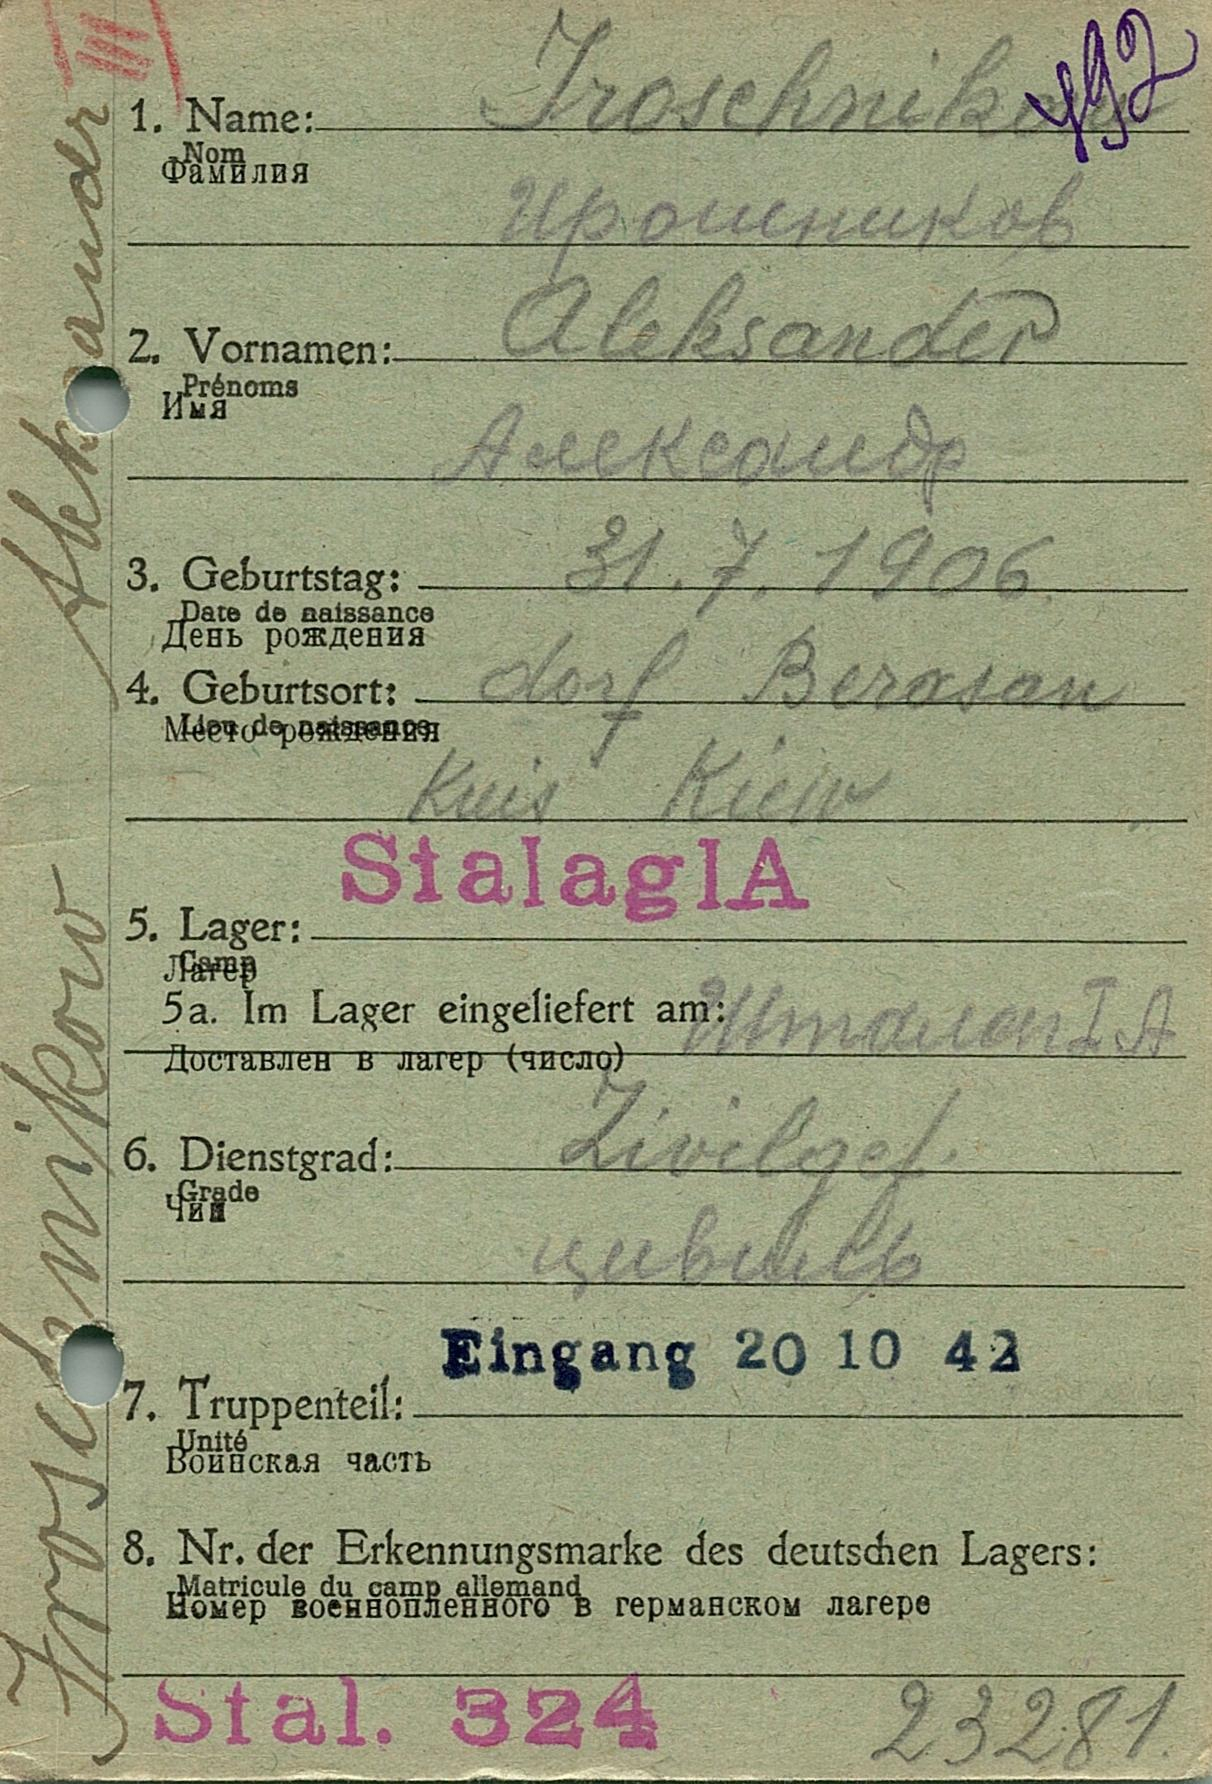 III
492
1. Name: Iroschnikow
Nom
Фамилия
Ирошников
2. Vornamen: Aleksander
Prénoms
Имя
Александр
3. Geburtstag: 31.7.1906
Date de naissance
День рождения
4. Geburtsort: dorf Berasan
Lieu de naissance
Место рождения
Kreis Kiew
StalagIA
5. Lager:
Camp
Лагер
5a. Im Lager eingeliefert am: Шталаг I A
Доставлен в лагер (число)
6. Dienstgrad: Zivilgef.
Grade
Чин
цивиль
Eingang 20 10 42
7. Truppenteil:
Unité
Воинская часть
8. Nr. der Erkennungsmarke des deutschen Lagers:
Matricule du camp allemand
Номер военнопленного в германском лагере
Stal. 324 23281.
Iroschnikow Aleksander